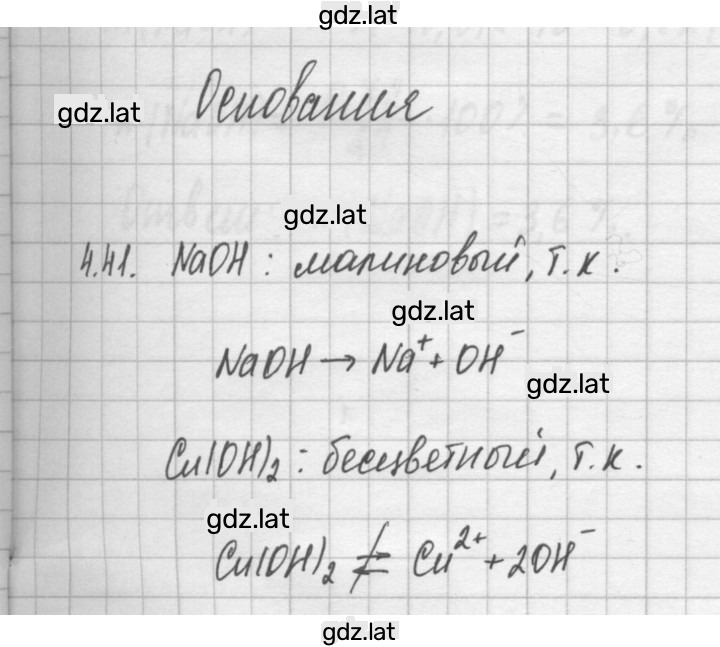 gdz.lat
Основания
gdz.lat
gdz.lat
4.41. NaOH : малиновый, т.к.
gdz.lat
NaOH → Na⁺ + OH⁻
gdz.lat
Cu(OH)₂ : бесцветный, т.к.
gdz.lat
Cu(OH)₂ ⇄̸ Cu²⁺ + 2OH⁻
gdz.lat